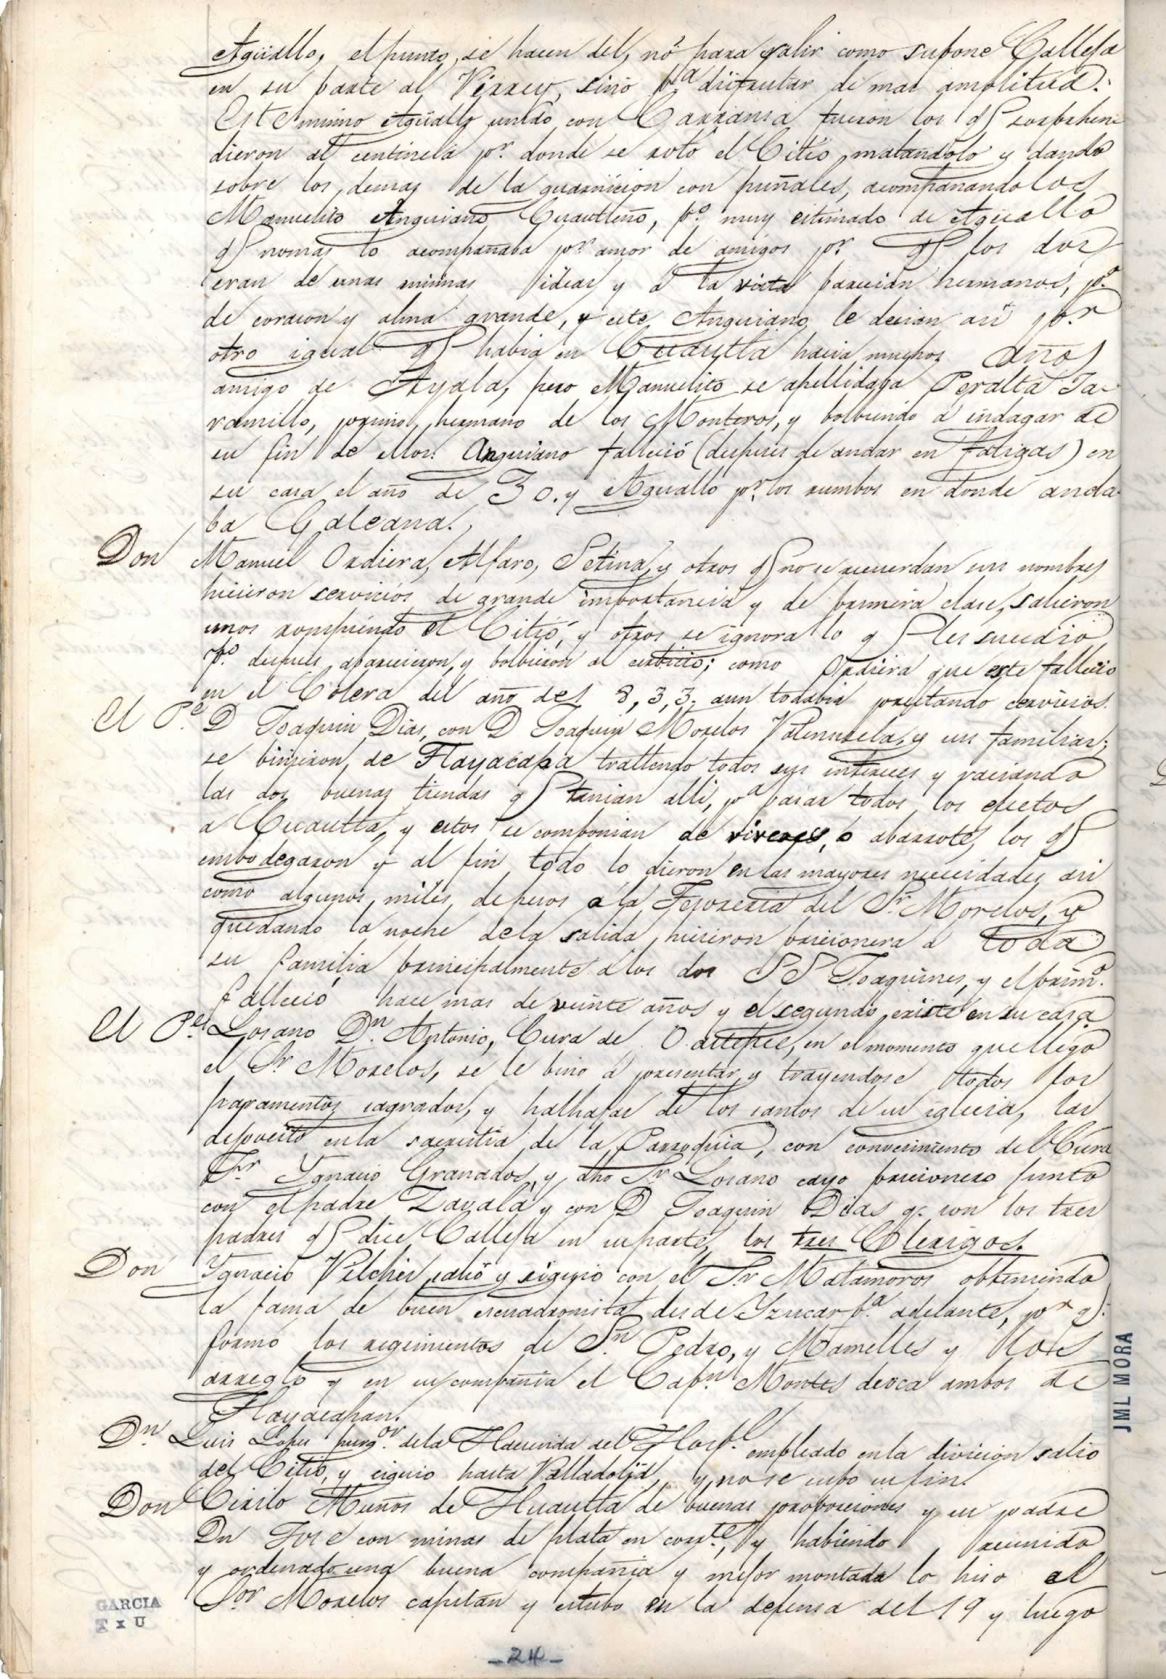 Aguallo, el punto, se hacen del, no para salir como supone Calleja
en su parte al Virrey, sino pa. disfrutar de mas amplitud.
Este mimo Aguallo unido con Carransa fueron los q sorprehen
dieron al centinela pr. donde se roto el Citio, matandolo y dando
sobre los, demas de la guarnicion con puñales, acompañandolos
Manuelito Anguiano, Cuautleño, po. muy estimado de Aguallo
q nomas lo acompañaba pr. amor de amigos pr. q los dos
eran de unas mimas ideas y á la vista parecian hermanos, po.
de corazon y alma grande, y este Anguiano, le decian asi por
otro igual q habia en Cuautla hacia muchos años
amigo de Ayala, pero Manuelito se apellidaba Peralta Ja-
ramillo, primo, hermano de los Monteros, y bolbiendo á indagar de
su fin de Mor. Anguiano fallecio (despues de andar en fatigas) en
su casa el año de 30. y Aguallo pr. los rumbos en donde anda
ba Galeana.
Don Manuel Ordiera, Alfaro, Setina, y otros q no se acuerdan sus nombres
hicieron servicios de grande importancia y de primera clase, salieron
unos rompiendo el Citio, y otros se ignora lo q les sucedio
po. despues, aparecieron, y bolbieron al cerbicio; como Ordiera que este fallecio
en el Colera del año del 8,3,3; aun todabia prestando cervicios.
El Pe. D Joaquin Dias, con D Joaquin Morelos Valenzuela, y sus familias;
se binieron, de Tlayacapa trallendo todos sus intereces y vaciando
las dos buenas tiendas q tenian alli, pa. pasar todos los efectos
a Cuautla, y estos se componian de viveres, o abarrotes, los q
embodegaron y al fin todo lo dieron en las mayores necesidades asi
como algunos, miles, de pesos a la Tesoreria del Sr. Morelos, y
quedando la noche de la salida, hicieron pricionera á toda
su familia principalmente á los dos SS Joaquines, y el prim.o
fallecio hace mas de veinte años y el segundo, existe en su casa
El Pe. Losano Dn. Antonio, Cura de Oastepec, en el momento que llego
el Sr Morelos, se le bino á presentar y trayendose todos los
paramentos sagrados, y halhajas de los santos de su iglecia, las
deposito en la sacristia de la Parroquia, con conocimiento del Cura
Sr Ygnacio Granados, y dho Sr Losano cayo pricionero junto
con el padre Zayala y con D Joaquin Dias q. son los tres
padres q dice Calleja en su parte, los tres Clerigos.
Don Ygnacio Vilchis, salió y siguio con el Sr Matamoros obteniendo
la fama de buen escuadronista desde Yzucar pa. adelante, pr. q.
formo los regimientos de Sn Pedro, y Mamelles y los
arreglo y en su compañia el Capn. Montes deoca ambos de
Tlayacapan.
Dn. Luis Lopes purgor. de la Hacienda del Hospl. empleado en la division salio
del Citio, y siguio hasta Valladolid, y no se supo su fin.
Don Cirilo Muños de Huautla de buenas proporciones y su padre
Dn Jose con minas de plata en corte., y habiendo reunido
y ordenado una buena compañia y mejor montada lo hiso el
Sor Morelos capitan y estubo en la defensa del 19 y luego
GARCIA
T x U
24
JML MORA